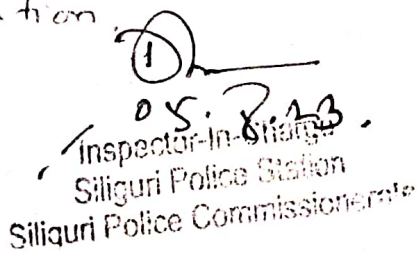 tion
05.8.23.
Inspector-In-Charge
Siliguri Police Station
Siliguri Police Commissionerate